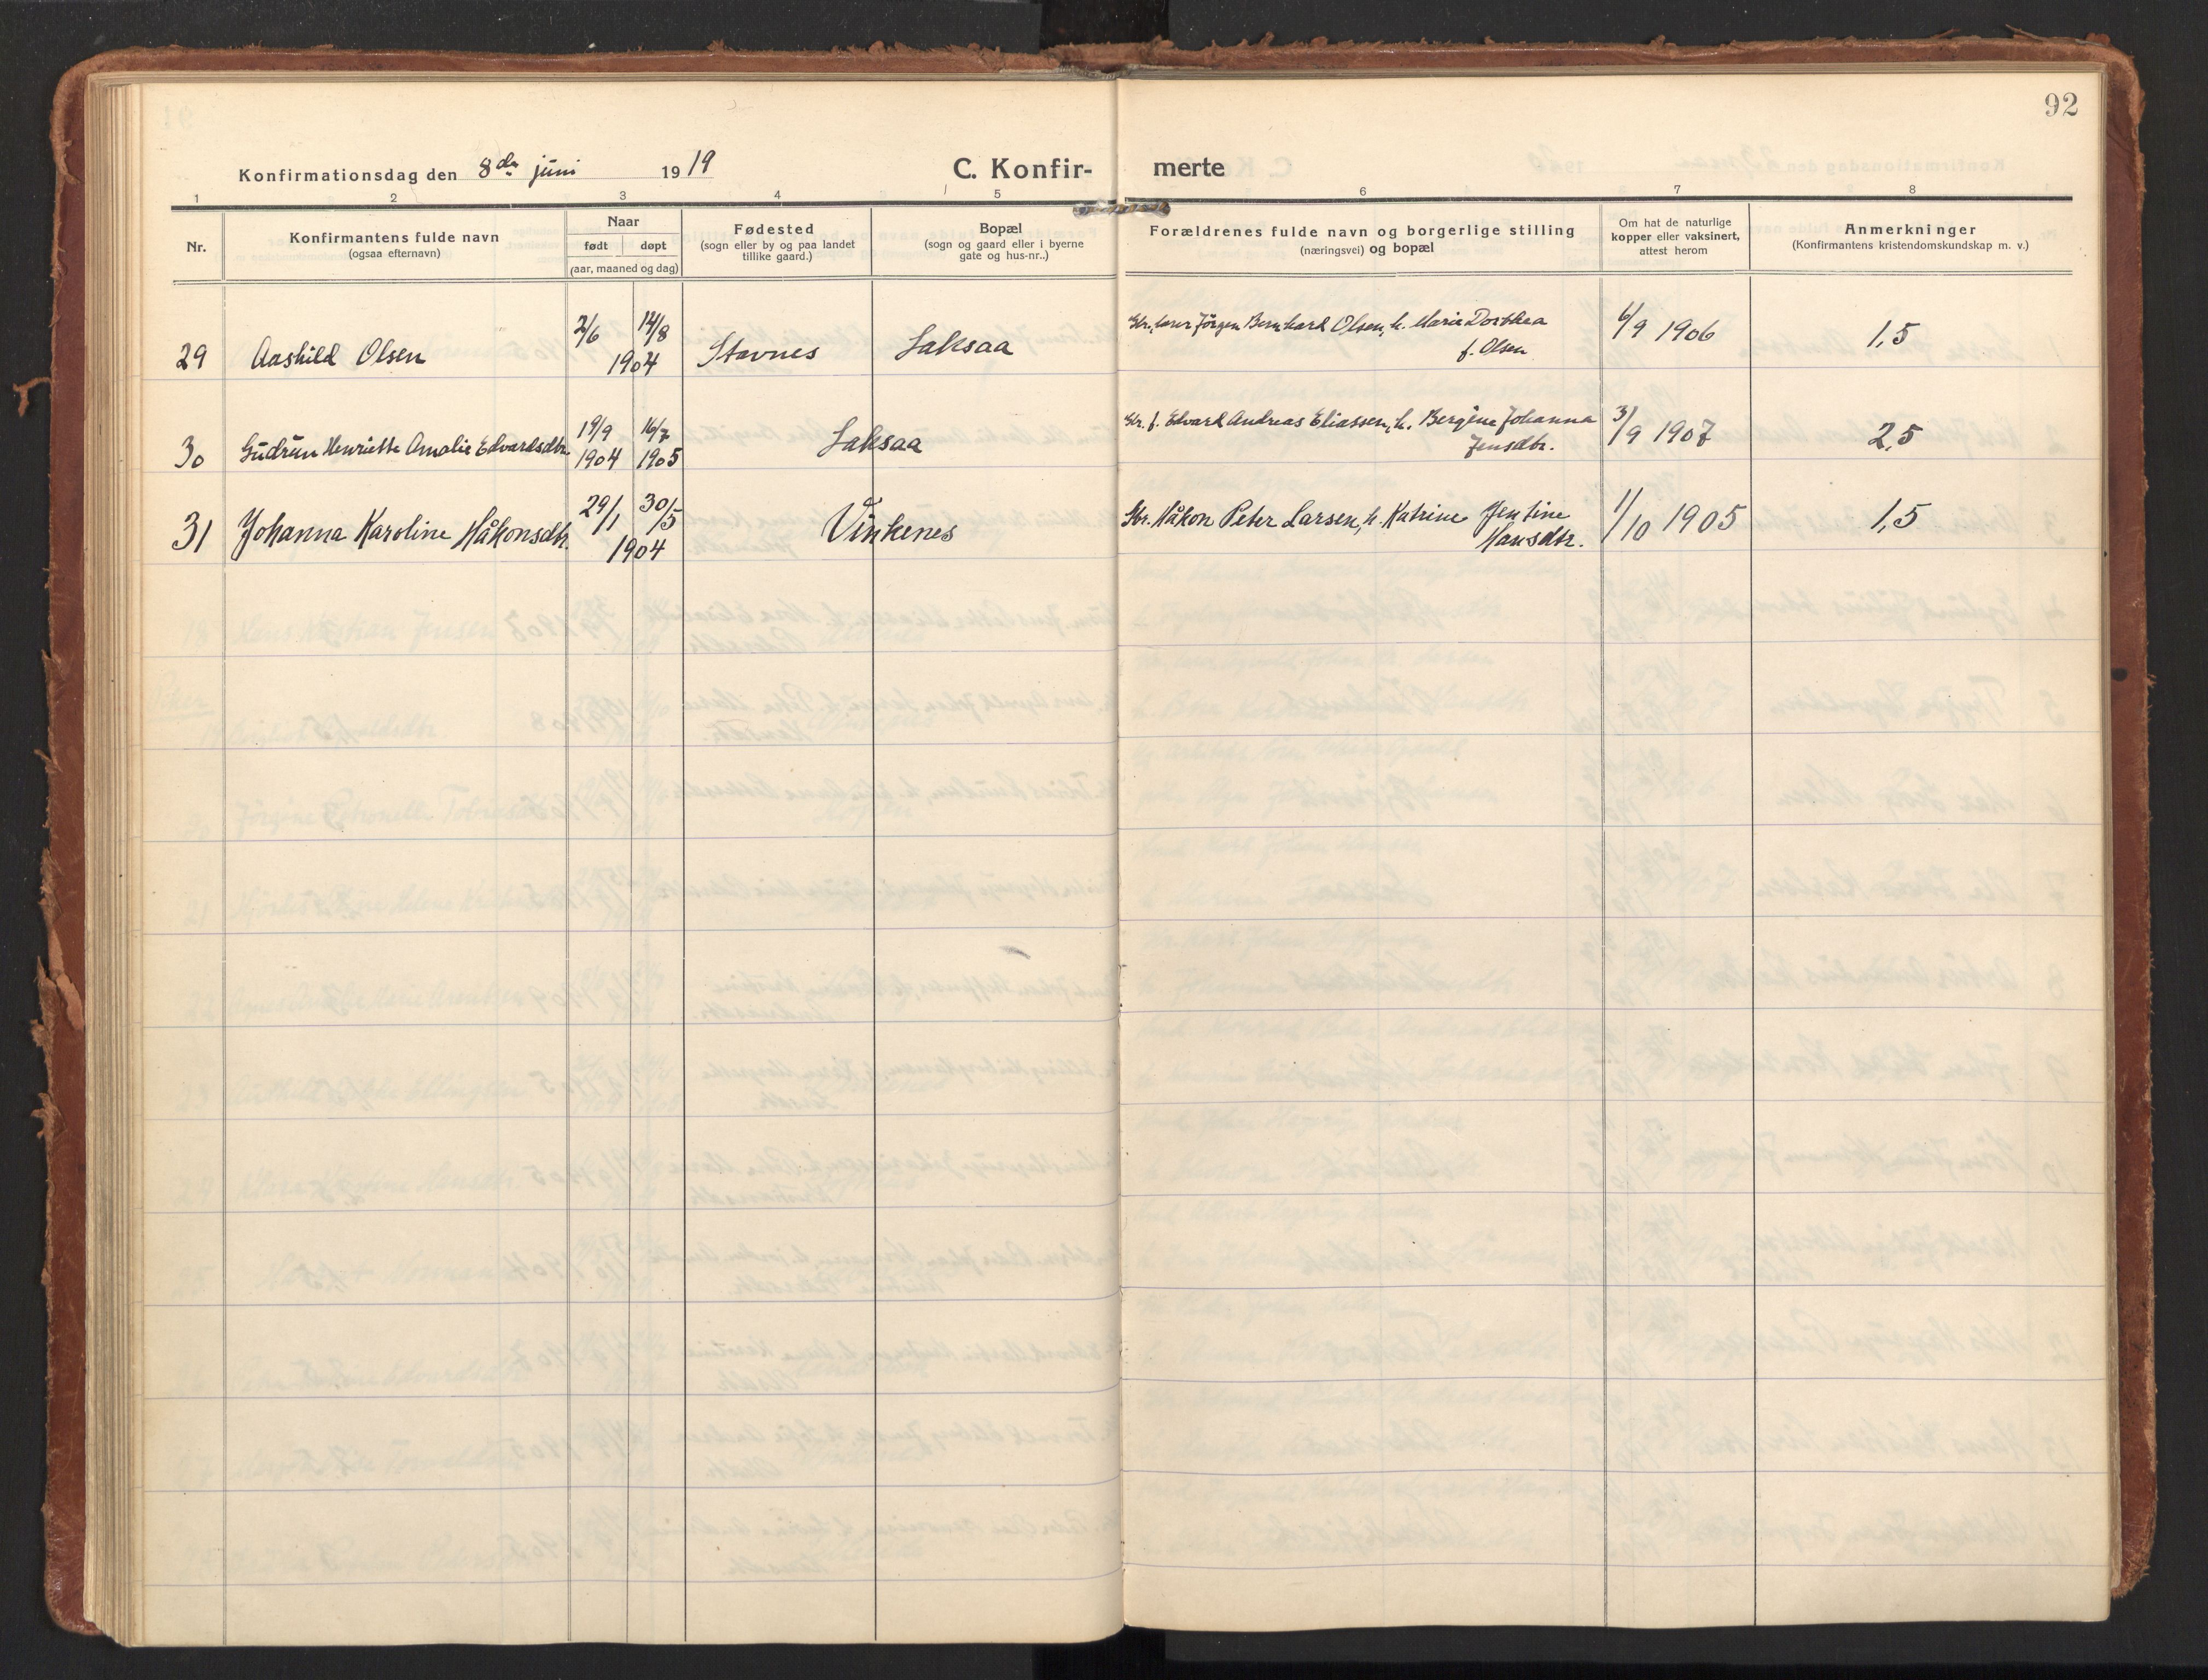 92
Konfirmationsdag den 8de juni 1919
C. Konfir- merte
1 2 3 4 5 6 7 8
Nr.
Konfirmantens fulde navn
(ogsaa efternavn)
Naar
født døpt
(aar, maaned og dag)
Fødested
(sogn eller by og paa landet
tillike gaard.)
Bopæl
(sogn og gaard eller i byerne
gate og hus-nr..)
Forældrenes fulde navn og borgerlige stilling
(næringsvei) og bopæl
Om hat de naturlige
kopper eller vaksinert,
attest herom
Anmerkninger
(Konfirmantens kristendomskundskap m. v.)
29 Aashild Olsen 2/6 14/8 1904 Stavnes Laksaa Jørgen Bernhard Olsen, h. Marie Dorthea
f. Olsen 6/9 1906 1,5
30 Gudrun Henriette Amalie Edvardsdtr. 19/9 1904 16/7 1905 Laksaa Edvard Andreas Eliassen, h. Bergine Johanna
Jensdtr. 3/9 1907 2,5
31 Johanna Karoline Håkonsdtr. 29/1 30/5 1904 Vinkenes Håkon Peter Larsen, h. Katrine Jentine
Hansdtr. 1/10 1905 1,5